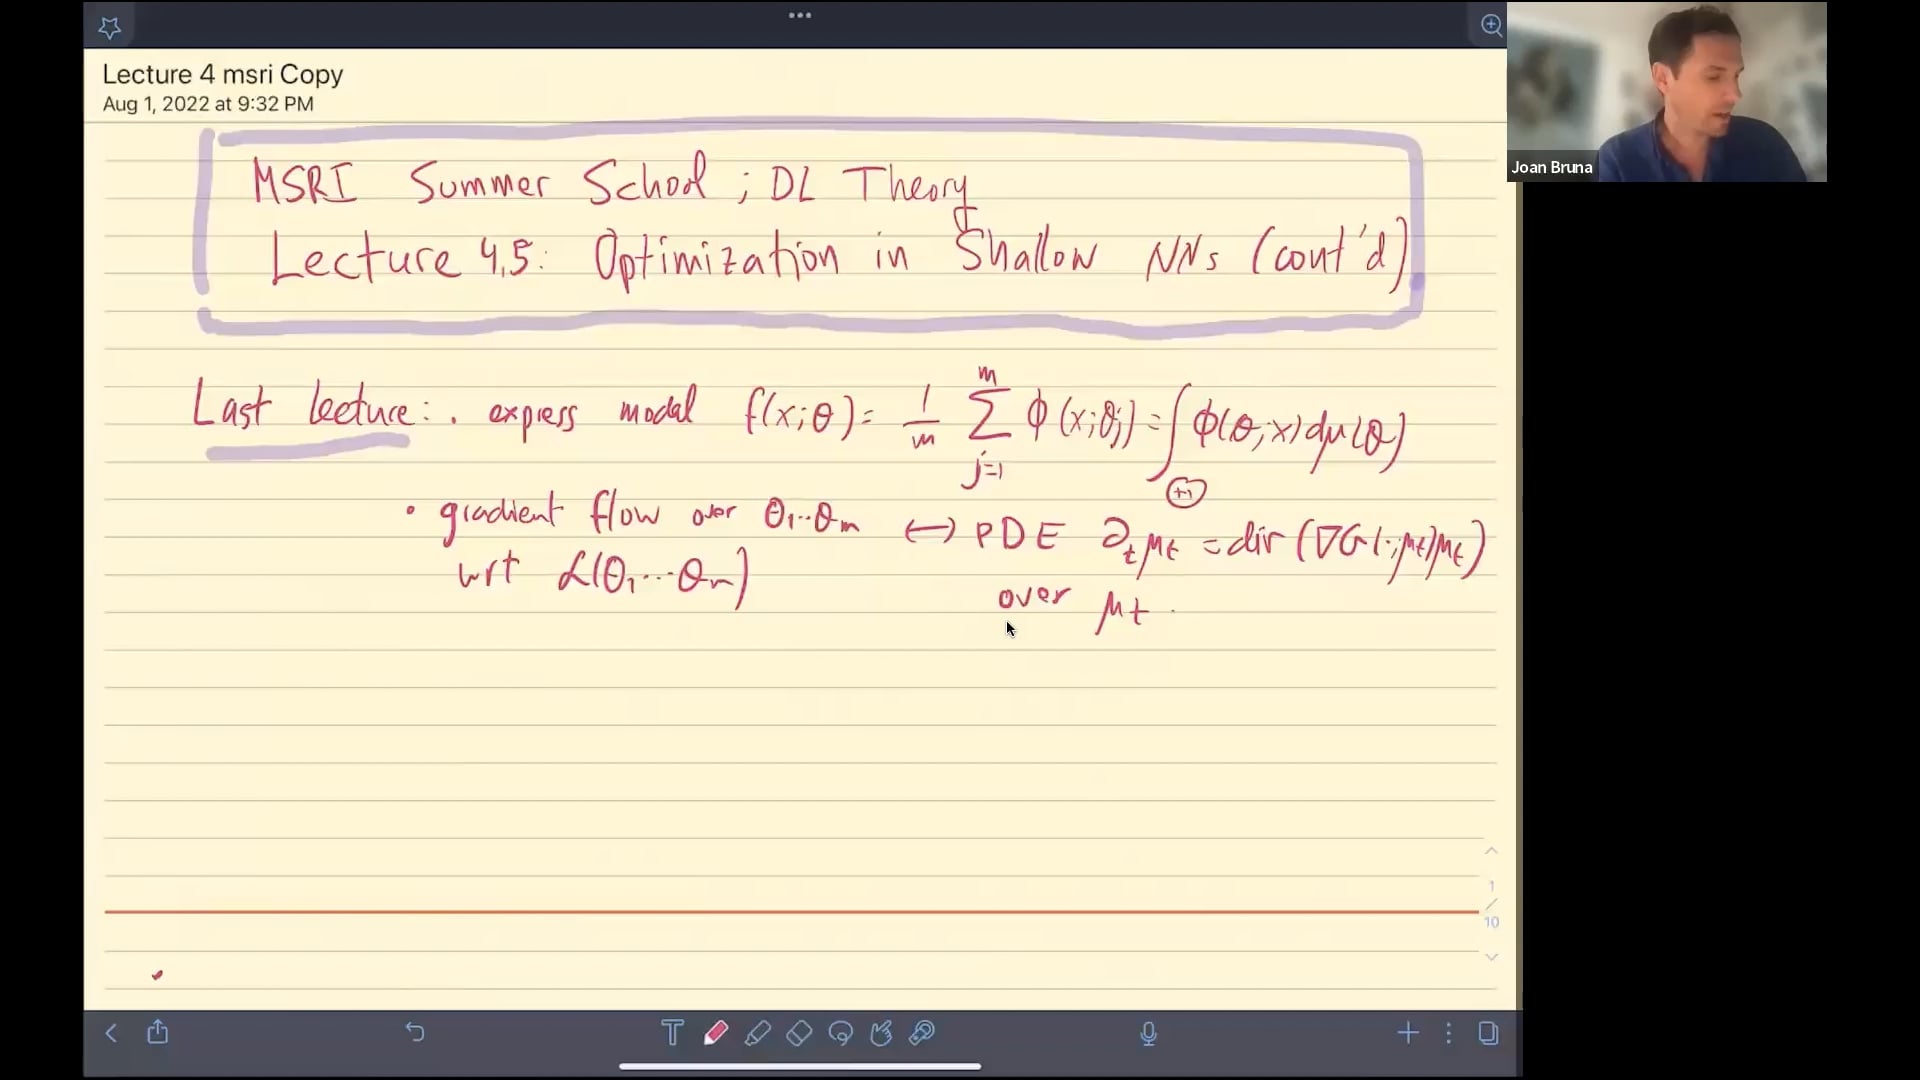 Lecture 4 msri Copy
Aug 1, 2022 at 9:32 PM
Joan Bruna
MSRI Summer School ; DL Theory
Lecture 4,5: Optimization in Shallow NNs (cont'd)
Last lecture: . express model f(x;θ) = 1/m Σ_{j=1}^{m} ϕ(x;θ_j) = ∫_Θ ϕ(θ;x) dμ(θ)
• gradient flow over θ₁..θₘ ↔ PDE ∂_t μ_t = div (∇G(·;μ_t) μ_t)
wrt ℒ(θ₁...θₘ)
over μ_t .
1
/
10
T